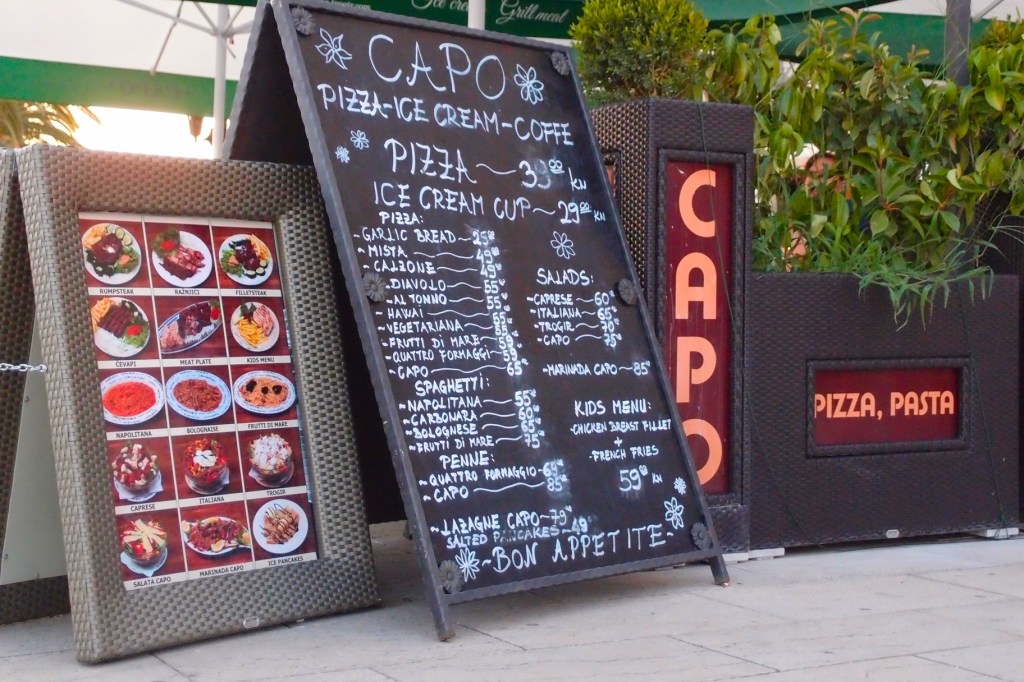 Ice cream Grill meat
RUMPSTEAK
RAŽNJICI
FILLETSTEAK
ĆEVAPI
MEAT PLATE
KIDS MENU
NAPOLITANA
BOLOGNAISE
FRUTTI DI MARE
CAPRESE
ITALIANA
TROGIR
SALATA CAPO
MARINADA CAPO
ICE PANCAKES
CAPO
PIZZA-ICE CREAM-COFFE
PIZZA~39⁰⁰ KN
ICE CREAM CUP~29⁰⁰ KN
PIZZA:
~GARLIC BREAD~25⁰⁰
~MISTA 49⁰⁰
~CALZONE 49⁰⁰
~DIAVOLO 55⁰⁰
~AL TONNO 55⁰⁰
~HAWAI 55⁰⁰
~VEGETARIANA 55⁰⁰
~FRUTTI DI MARE 59⁰⁰
~QUATTRO FORMAGGI 59⁰⁰
~CAPO 65⁰⁰
SPAGHETTI:
~NAPOLITANA 55⁰⁰
~CARBONARA 60⁰⁰
~BOLOGNESE 65⁰⁰
~FRUTTI DI MARE 75⁰⁰
PENNE:
~QUATTRO FORMAGGIO~69⁰⁰
~CAPO 85⁰⁰
~LAZAGNE CAPO~79⁰⁰
SALTED PANCAKES~49⁰⁰
~BON APPETITE~
SALADS:
~CAPRESE~60⁰⁰
~ITALIANA~65⁰⁰
~TROGIR~70⁰⁰
~CAPO~75⁰⁰
~MARINADA CAPO~85⁰⁰
KIDS MENU:
-CHICKEN BREAST FILLET
+
-FRENCH FRIES
59⁰⁰ KN
CAPO
PIZZA, PASTA